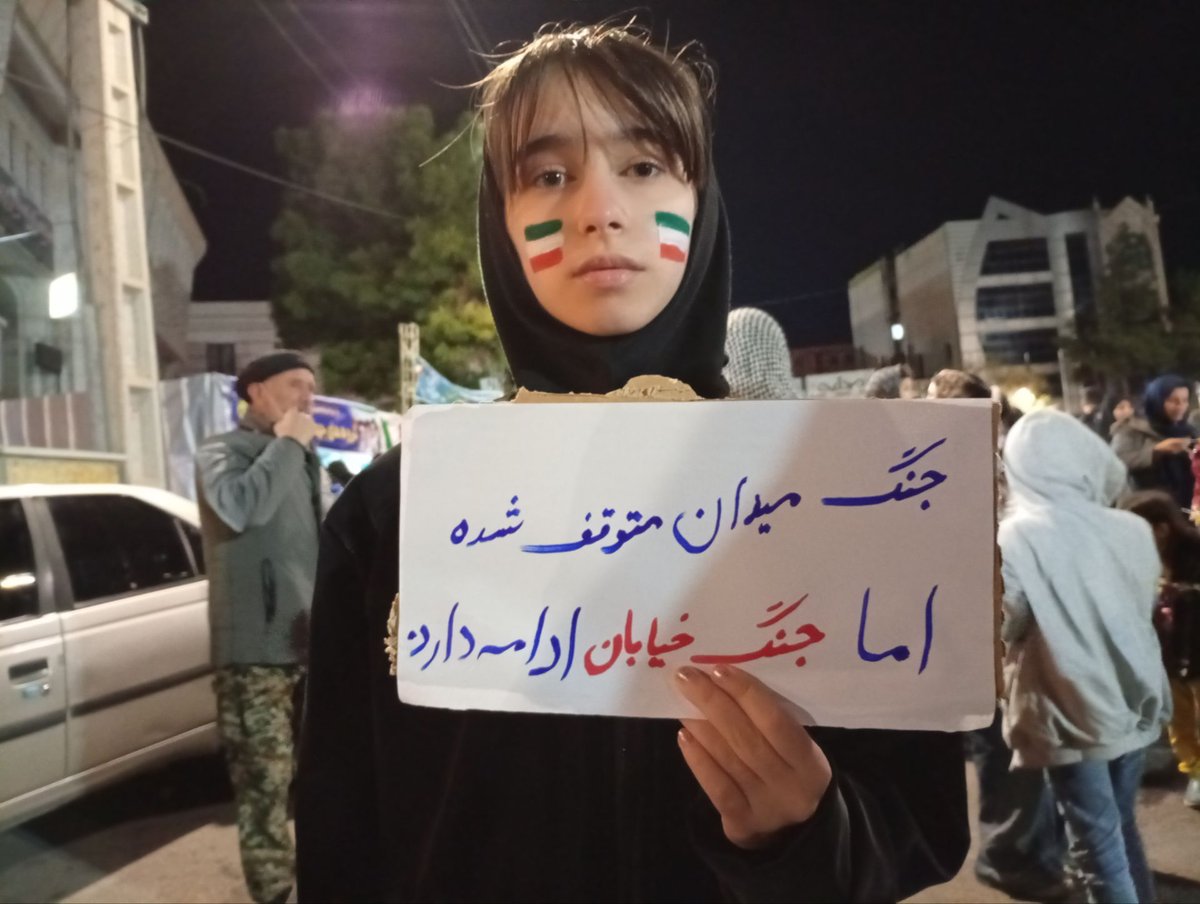 جنگ میدان متوقف شده
اما جنگ خیابان ادامه دارد